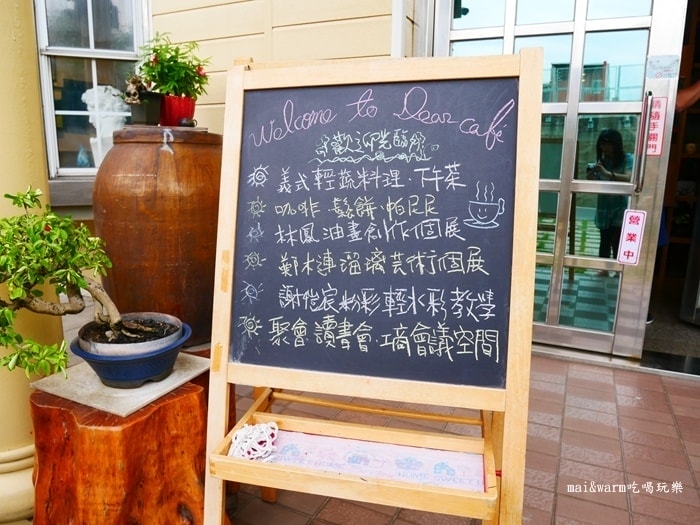 Welcome to Dear café
歡迎光臨
義式輕蔬料理.下午茶
咖啡.鬆餅.帕尼尼
林鳳 油畫創作個展
鄭木連 瑠璃芸術個展
謝愷宸 粉彩輕水彩教學
聚會.讀書會.工商會議空間
請隨手關門
營業中
HOME SWEET
mai&warm吃喝玩樂